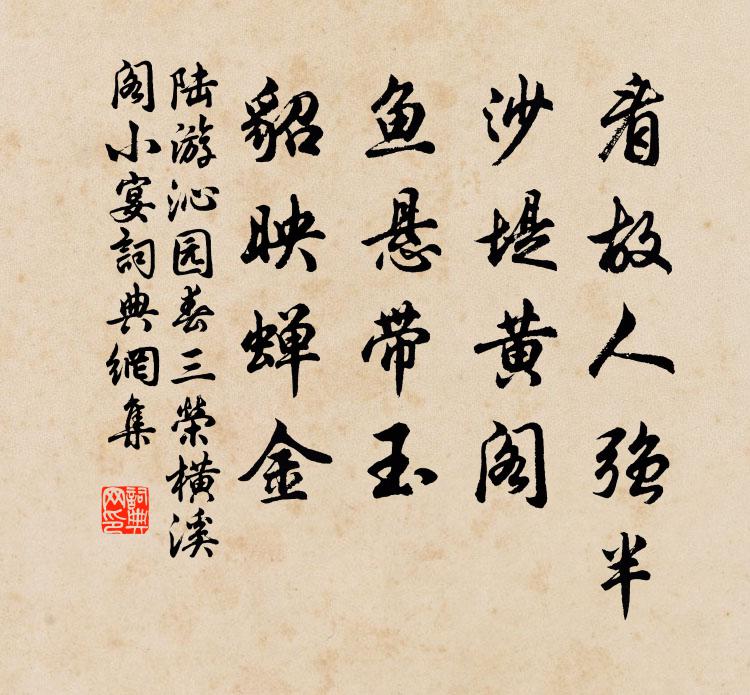 看故人强半
沙堤黄阁
鱼悬带玉
貂映蝉金
陆游沁园春三荣横溪
阁小宴詞典網集
詞典网印